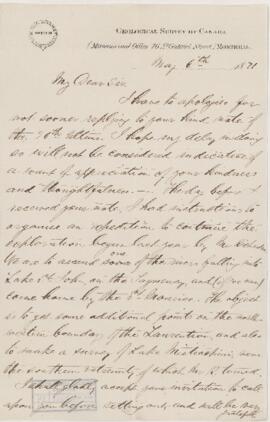 GEOLOGICAL SURVEY OF CANADA
(Museum and Office 76 St Gabriel Street) MONTREAL
May 6th 1871
My Dear Sir
I have to apologise for
not sooner replying to your kind note of
the 26th I hope my delay in doing
so will not be considered indicative of
a want of appreciation of your kindness
and thoughtfulness. The day before I
received your note, I had instructions to
organise an expedition to continue the
exploration begun last year by Mr
We are to ascend some one of the rivers falling into
Lake St John, on the Saguenay, and (if we can)
come home by the St Maurice. The object
is to get some additional points on the north
western boundary of the Laurentian, and also
to make a survey of Lake Mistassini, near
the southern extremity of which Mr R. turned.
I shall gladly accept your invitation to call
upon you before setting out, and will be very